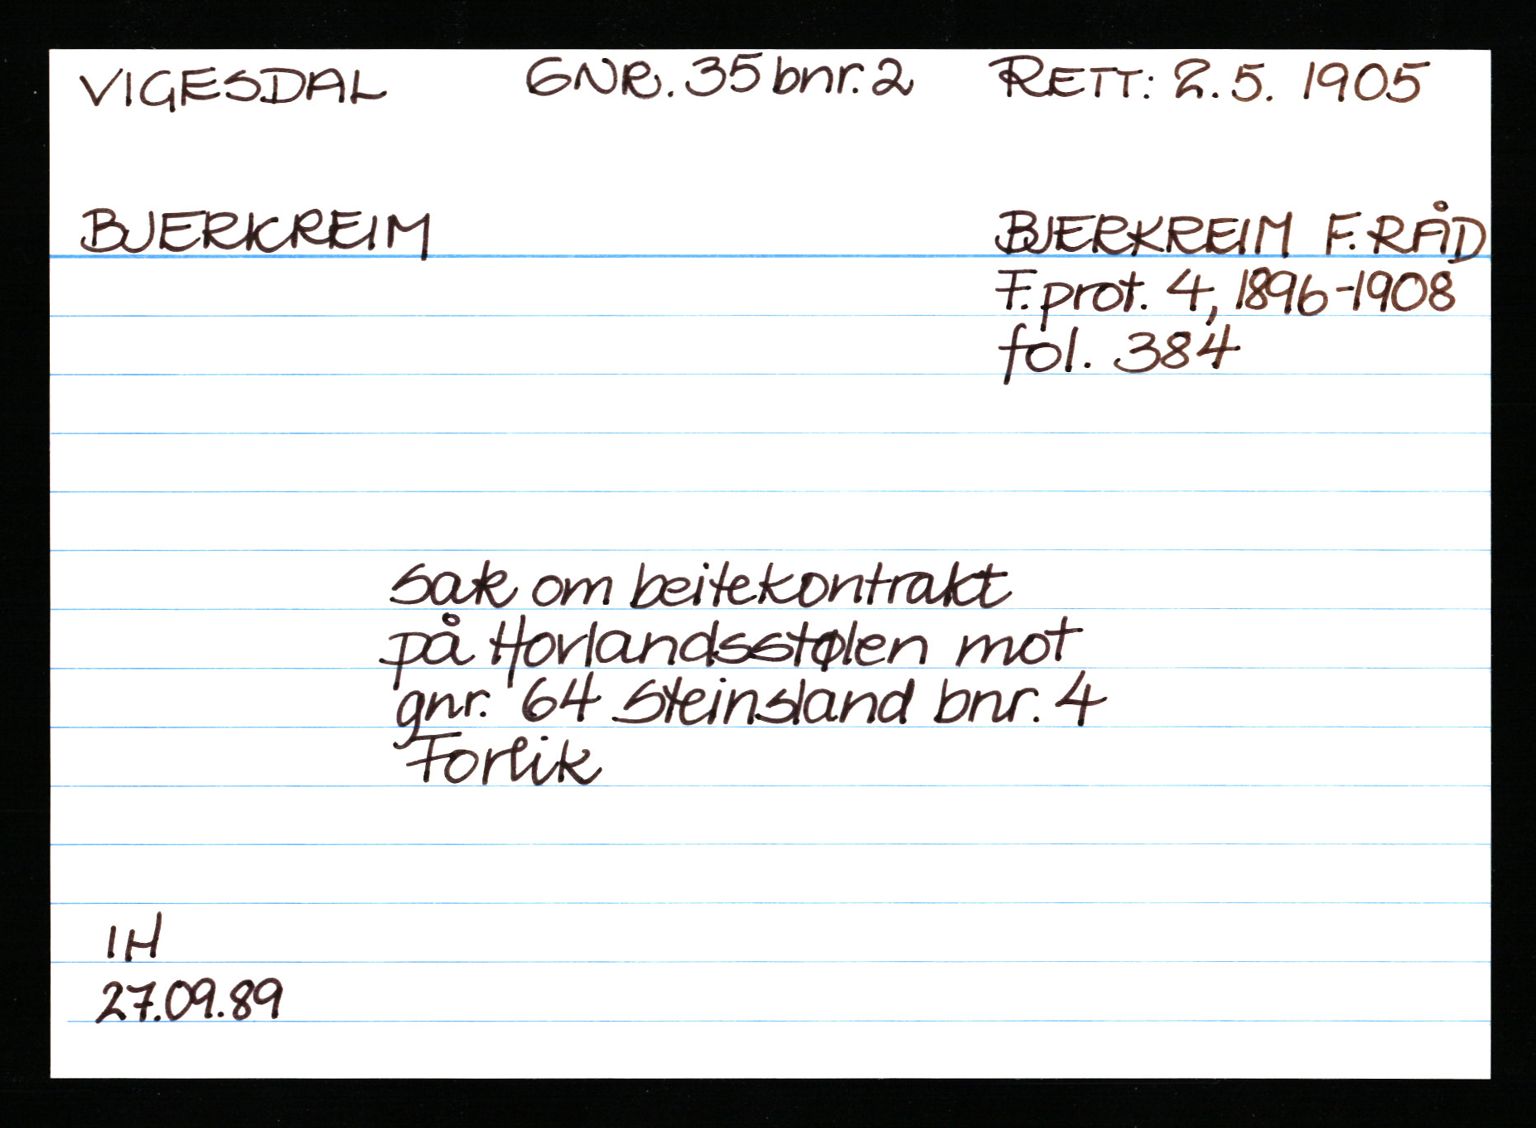 VIGESDAL GNR. 35 bnr. 2 RETT: 2.5. 1905
BJERKREIM BJERKREIM F.RÅD
F.prot. 4, 1896-1908
fol. 384
Sak om beitekontrakt
på Hovlandsstølen mot
gnr. 64 Steinsland bnr. 4
Forlik
IH
27.09.89